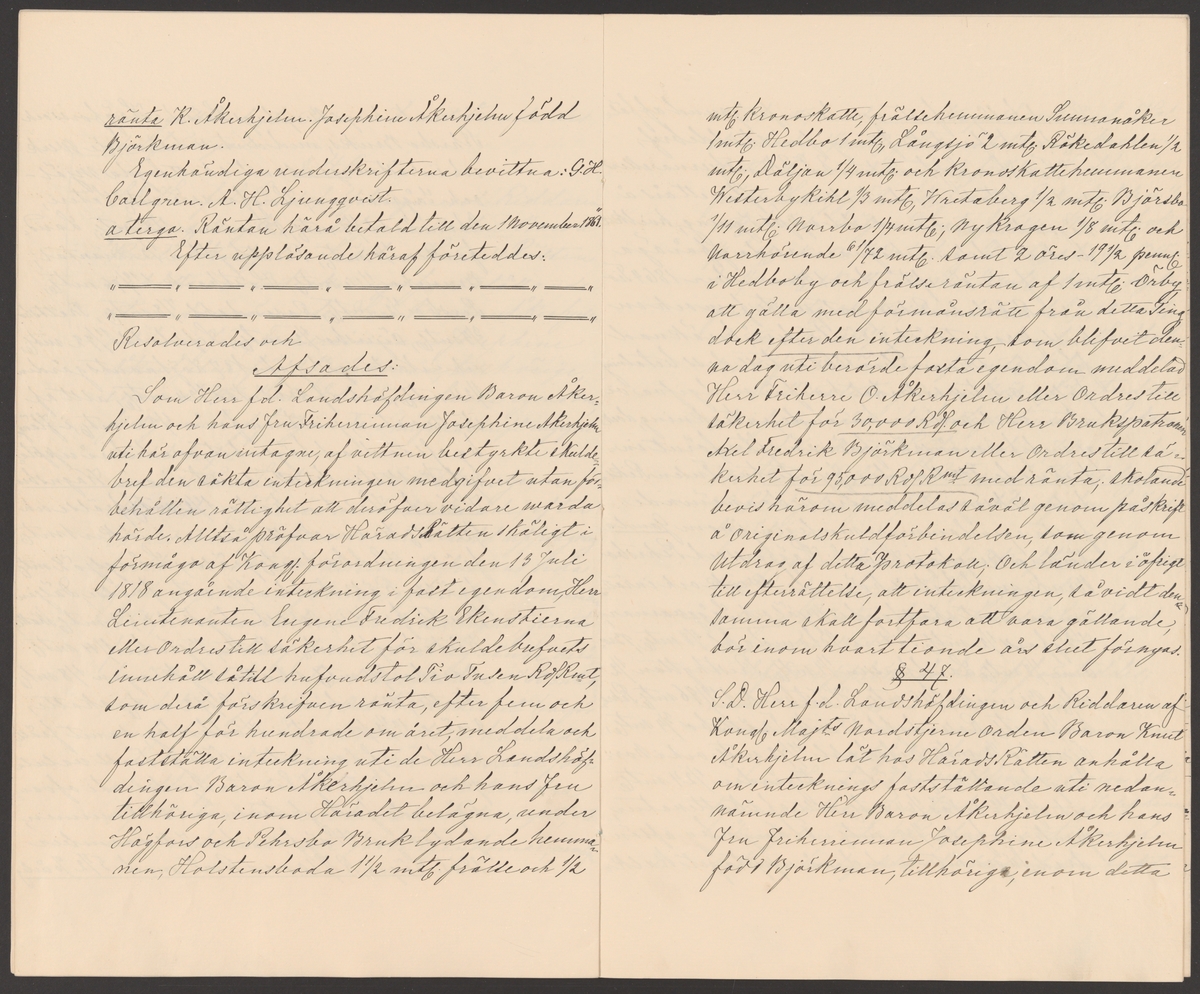 ränta K. Åkerhjelm. Josephine Åkerhjelm född
Björkman.
Egenhändiga underskrifterna bevittna: G. H.
Carlgren. A. H. Ljungqvist.
a tergo. Räntan härå betald till den 1 November 1861.
Efter uppläsande häraf företeddes:
" — " — " — " — " — " — " — "
" — " — " — " — " — " — " — "
Resolverades och
Afsades:
Som Herr f.d. Landshöfdingen Baron Åker-
hjelm och hans fru Friherrinnan Josephine Åkerhjelm
uti här ofvan intagne, af vittnen bestyrkte skulde-
bref den sökta inteckningen medgifvet utan för-
behållen rättighet att deröfver vidare warda
hörde. Alltså pröfvar HäradsRätten skäligt i
förmågo af Kongl. förordningen den 13 Juli
1818 angående inteckning i fast egendom, Herr
Lieutenanten Eugene Fredrik Ekenstierna
eller Ordres till säkerhet för skuldebrefvets
innehåll såtill hufvudstol Tio Tusen Rdr Rmt,
som derå förskrifven ränta, efter fem och
en half för hundrade om året, meddela och
fastställa inteckning uti de Herr Landshöf-
dingen Baron Åkerhjelm och hans Fru
tillhöriga, inom Häradet belägna, under
Högfors och Pehrsbo Bruk lydande hemma-
nen, Holstensboda 1 1/2 mtl. frälse och 1/2
mtl. kronoskatte, frälsehemmanen Sunnanåker
1 mtl. Hedbo 1 mtl. Långsjö 2 mtl. Rökedahlen 1/2
mtl., Däljan 1/4 mtl. och kronoskattehemmanen
Westerbykihl 1/3 mtl. Hretaberg 1/2 mtl. Björsbo
1/11 mtl. Norrbo 1/4 mtl., Nykrogen 1/8 mtl. och
Norrhörende 61/72 mtl. samt 2 öres - 19 1/2 pennl.
i Hedboby och frälseräntan af 1 mtl. Örby,
att gälla med förmånsrätt från detta Ting
dock efter den inteckning, som blifvit den-
na dag uti berörde fasta egendom meddelad
Herr Friherre O. Åkerhjelm eller Ordres till
säkerhet för 30,000 Rdr. och Herr Brukspatronen
Axel Fredrik Björkman eller Ordres till sä-
kerhet för 95,000 Rdr Rmt med ränta; skolande
bevis härom meddelas såväl genom påskrift
å Originalskuldförbindelsen, som genom
Utdrag af detta Protokoll. Och länder i öfrigt
till efterrättelse, att inteckningen, så vidt den-
samma skall fortfara att vara gällande,
bör inom hvart tionde års slut förnyas.
§ 47.
S. D. Herr f.d. Landshöfdingen och Riddaren af
Kongl. Majts Nordstjerne Orden Baron Knut
Åkerhjelm lät hos HäradsRätten anhålla
om intecknings fastställande uti nedan-
nämnde Herr Baron Åkerhjelm och hans
Fru Friherrinnan Josephine Åkerhjelm
född Björkman, tillhöriga, inom detta